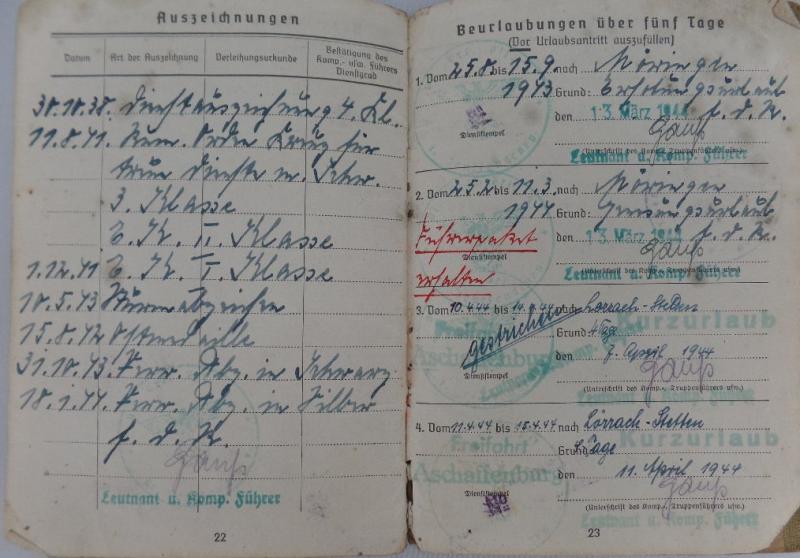 Auszeichnungen
Datum
Art der Auszeichnung
Verleihungsurkunde
Bestätigung des
Komp.- usw. Führers
Dienstgrad
30.10.38. Dienstauszeichnung 4. Kl.
11.8.41. Rum. Orden Kreuz für
treue Dienste m. Schw.
3. Klasse
E. K. II. Klasse
1.12.41 E. K. I. Klasse
10.5.43 Sturmabzeichen
15.8.42 Ostmedaille
31.10.43. Verw. Abz. in Schwarz
18.1.44. Verw. Abz. in Silber
f. d. R.
Gauß
Leutnant u. Komp. Führer
22
Beurlaubungen über fünf Tage
(Vor Urlaubsantritt auszufüllen)
1. Vom 25.8. bis 15.9. nach
1943 Grund: Erholungsurlaub
den 13. März 1944 f. d. R.
Gauß
Dienststempel
(Unterschrift des Komp.-, Truppenführers usw.)
Leutnant u. Komp. Führer
2. Vom 25.2. bis 11.3. nach
1944 Grund: Genesungsurlaub
den 13. März 1944 f. d. R.
Führerpaket
erhalten
Gauß
Dienststempel
(Unterschrift des Komp.-, Truppenführers usw.)
Leutnant u. Komp. Führer
3. Vom 10.4.44 bis 14.4.44 nach Lörrach-Stetten
Freifahrt
Aschaffenburg
gestrichen
Grund: 4 Tage
Kurzurlaub
den 7. April 1944
Gauß
Dienststempel
(Unterschrift des Komp.-, Truppenführers usw.)
Leutnant u. Komp. Führer
4. Vom 11.4.44 bis 15.4.44 nach Lörrach-Stetten
Freifahrt
Aschaffenburg
Grund: Tage
Kurzurlaub
den 11. April 1944
Gauß
Dienststempel
(Unterschrift des Komp.-, Truppenführers usw.)
Leutnant u. Komp. Führer
23